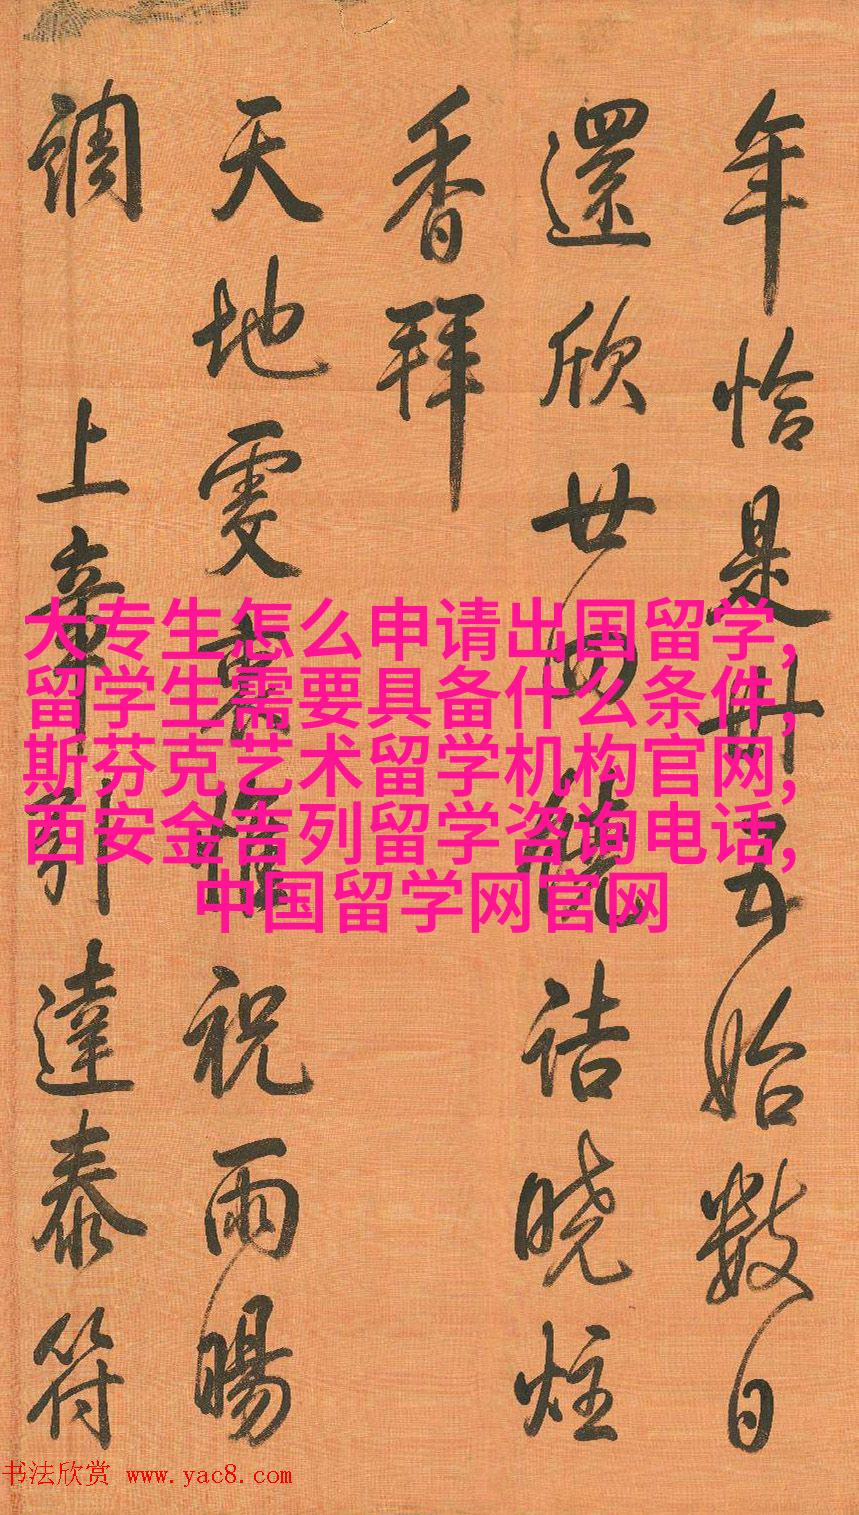 年恰是卅五始數日
還欣廿四詰曉炷
香拜
天地虔衷惟祝雨暘
調 上辛引達泰符
大专生怎么申请出国留学,
留学生需要具备什么条件,
斯芬克艺术留学机构官网,
西安金吉列留学咨询电话,
中国留学网官网
书法欣赏 www.yac8.com